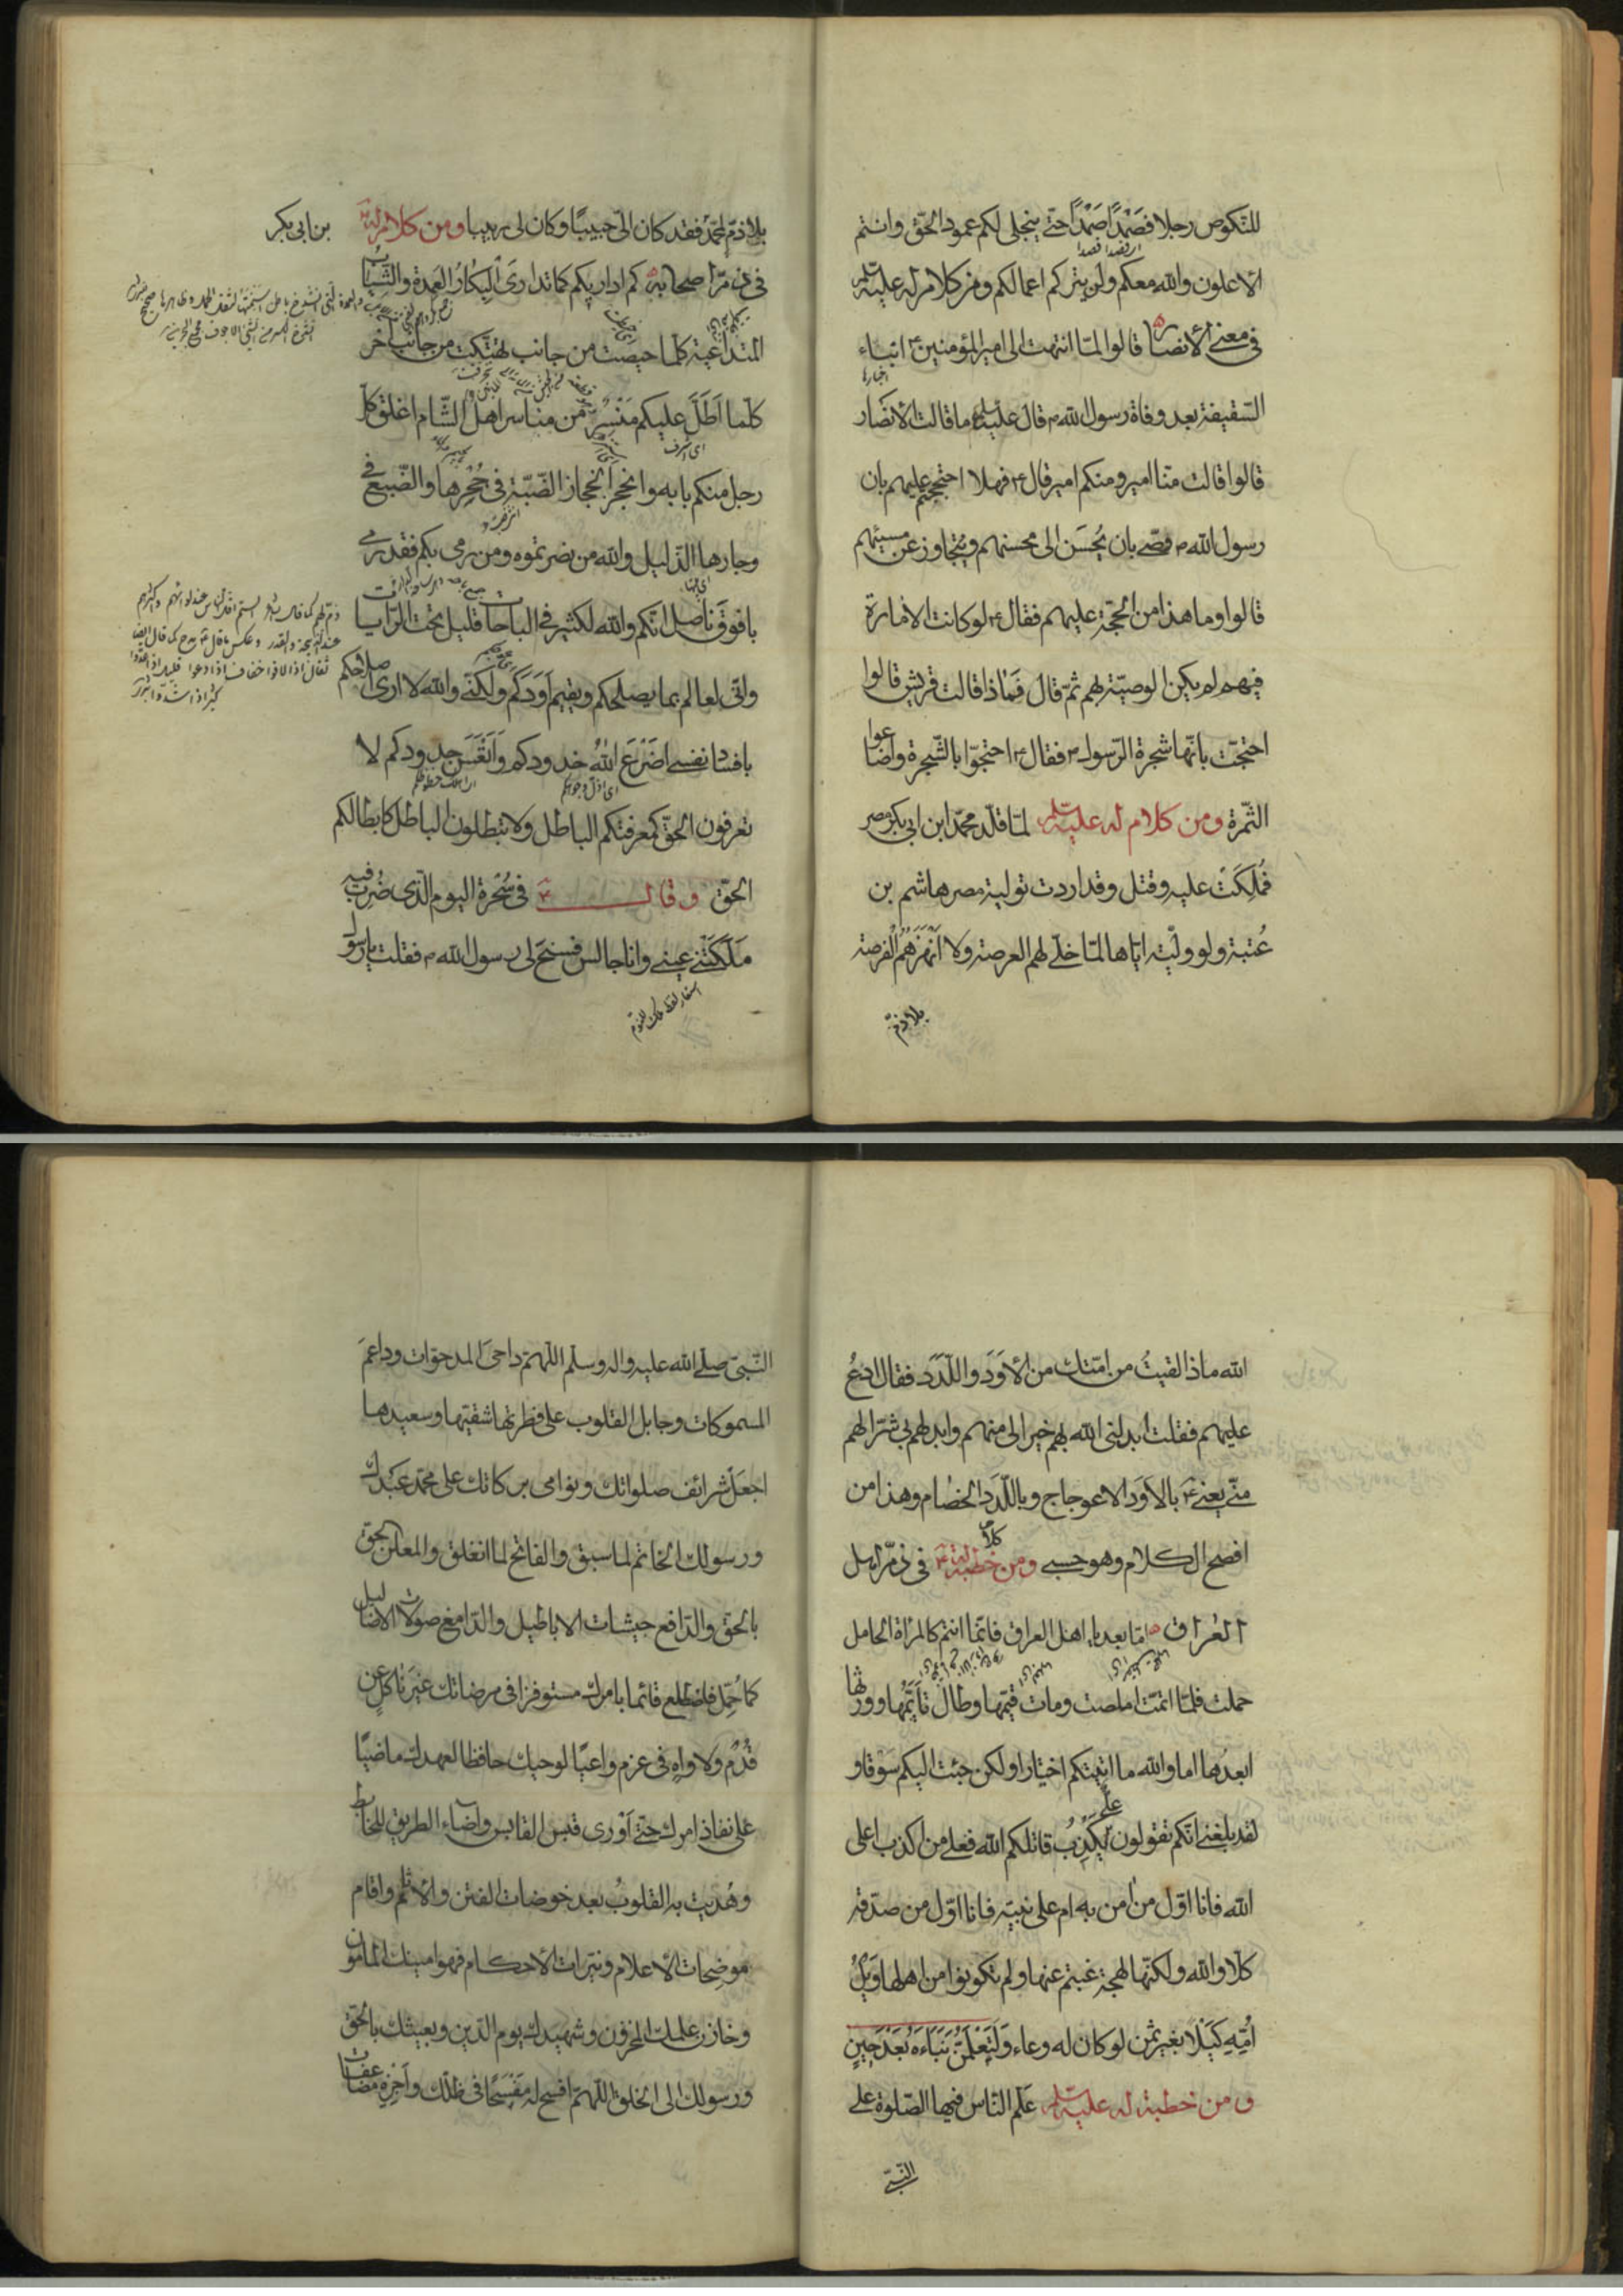 للنكوص رجلا فصَمْدًا صَمْدًا حتّى ينجلى لكم عمود الحقّ وانتم
الاعلون والله معكم ولن يتركم اعمالكم ومن كلام له عليه السلم
فى معنى الانصار قالوا لمّا انتهت الى امير المؤمنين ع انباء
السّقيفة بعد وفاة رسول الله ص قال عليه السلم ما قالت الانصار
قالوا قالت منّا امير ومنكم امير قال ع فهلا احتججتم عليهم بان
رسول الله ص وصّى بان يُحسَن الى محسنهم ويتجاوز عن مسيئهم
قالوا وما هذا من الحجّة عليهم فقال ع لو كانت الامارة
فيهم لم يكن الوصيّة بهم ثمّ قال فماذا قالت قريش قالوا
احتجّت بانّها شجرة الرّسول ص فقال ع احتجّوا بالشّجرة واضاعوا
الثّمرة ومن كلام له عليه السلم لمّا قلّد محمّد ابن ابى بكر مصر
فمُلِكَتْ عليه وقتل وقد اردت تولية مصر هاشم بن
عُتبة ولو ولّيته ايّاها لمّا خلّى لهم العرصة ولا اَنْهَزَهُمُ الْفرصة
بلا ذمّ
بلا ذمّ لمحمّد فقد كان الىّ حبيبًا وكان لى ربيبا ومن كلام له ع
بن ابى بكر
فى ذمّ اصحابه كم اداريكم كما تدارىَ الْبِكارُ العَمِدة والثّياب
المتداعية كلّما حيصت من جانب تهتّكت من جانب آخر
كلّما اَطَلَّ عليكم مَنْسِرٌ من مناسر اهل الشّام اغلق كلّ
رجل منكم بابه وانجحر انجحار الضّبّة فى جُحْرِها والضّبع فى
وجارها الذّليل والله من نصرتموه ومن رمى بكم فقد رمى
بافوق ناصل انّكم والله لكثير فى الباحات قليل تحت الرّايات
وانّى لعالم بما يصلحكم ويقيم اَوَدَكم ولكنّى والله لا ارى صلاحكم
بافساد نفسى اَضْرَعَ اللهُ خدودكم وَاَتْعَسَ جدودكم لا
تعرفون الحقّ كمعرفتكم الباطل ولا تبطلون الباطل كابطالكم
الحقّ وقال ع فى سُحْرة اليوم الّذى ضُرب فيه
مَلَكَتْنى عينى وانا جالس فسنح لى رسول الله ص فقلت يا رسول
الله ماذا لقيتُ من امّتك من الاَوَدَ واللّدَد فقال ادعُ
عليهم فقلت ابدلنى الله بهم خيرا لى منهم وابدلهم بى شرّا لهم
منّى يعنى ع بالاَوَد الاعوجاج وباللّدَد الخصام وهذا من
افصح الكلام وهو حسبى ومن خطبة له ع فى ذمّ اهل
كلام
العراق امّا بعد يا اهل العراق فانّما انتم كالمراة الحامل
حملت فلمّا اتمّت املصت ومات قيّمها وطال تأيّمها وورثها
ابعدُها اما والله ما اتيتكم اختيارا ولكن جئت اليكم سَوْقا و
لقد بلغنى انّكم تقولون يَكْذِبُ قاتلكم الله فعلى من اكذب اعلى
علىّ
الله فانا اوّل من آمن به ام على نبيّه فانا اوّل من صدّقه
كلّا والله ولكنّها لهجة غبتم عنها ولم تكونوا من اهلها وَيْلُ
اُمِّهِ كَيْلًا بغير ثمن لو كان له وعاء وَلَتَعْلَمُنَّ نَبَاَهُ بَعْدَ حِينٍ
ومن خطبة له عليه السلم علّم النّاس فيها الصّلوة على
النّبىّ
النّبىّ صلّى الله عليه واله وسلّم اللهمّ داحى المدحوّات وداعم
المسموكات وجابل القلوب على فطرتها شقيّها وسعيدها
اجعل شرائف صلواتك ونوامى بركاتك على محمّد عبدك
ورسولك الخاتم لما سبق والفاتح لما انغلق والمعلن الحقّ
بالحقّ والدّافع جيشات الاباطيل والدّامغ صولات الاضاليل
كما حُمّل فاضطلع قائما بامرك مستوفزا فى مرضاتك غيرَ ناكل عن
قُدُمٍ ولا واهٍ فى عزم واعيًا لوحيك حافظا لعهدك ماضيًا
على نفاذ امرك حتّى اَوْرى قبس القابس واضاء الطريق للخابط
وهُديت به القلوبُ بعد خوضات الفتن والاثم واقام
موضِحات الاعلام ونيّرات الاحكام فهو امينك المامون
وخازن علمك المخزون وشهيدك يوم الدّين وبعيثك بالحقّ
ورسولك الى الخلق اللّهمّ افسح له مَفْسَحًا فى ظلّك واَجزِهِ مضاعفات